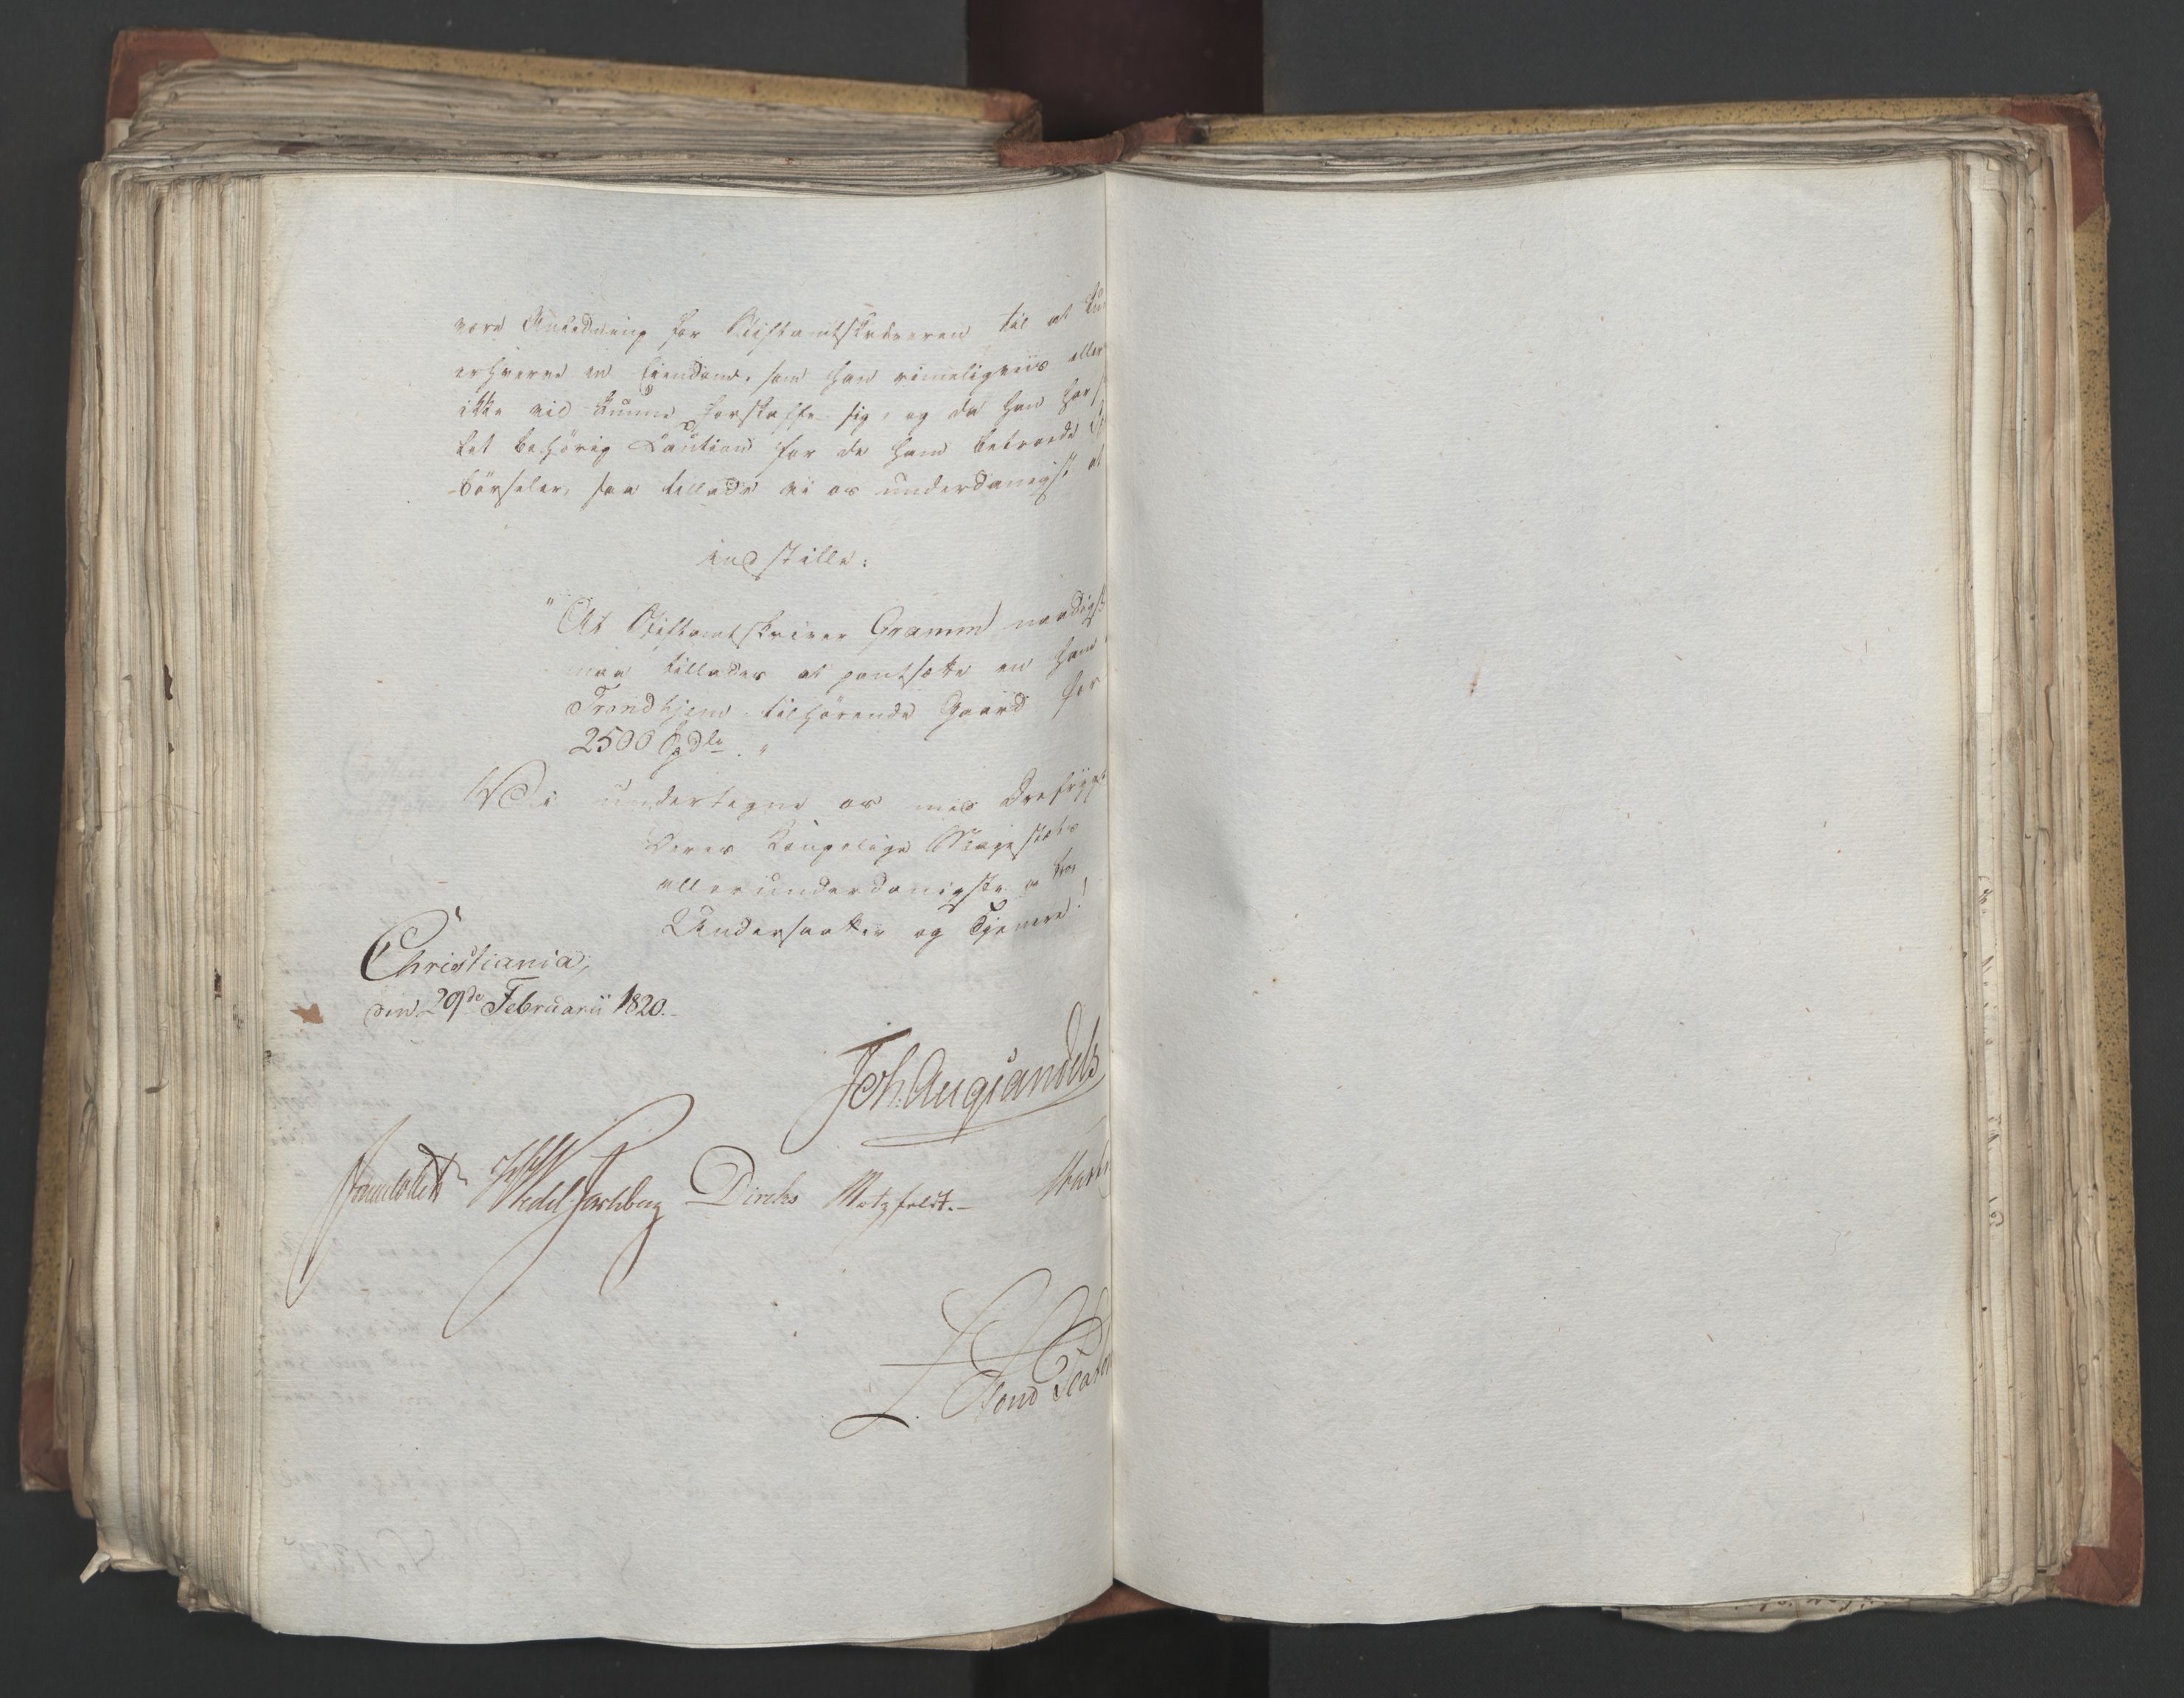 være Anledning for Stiftamtskriveren til at
erhverve en Eiendom, som han rimeligviis ellers
ikke vil kunne forskaffe sig, og da han har
let behørig Caution for de ham betroede
børseler, saa tillade vi os underdanigst at
indstille:
"At Stiftamtskriver Gramm naadigst
maa tillades at pantsætte en ham
Trondhjem tilhørende Gaard for
2500 Spdlr."
Vi undertegne os med Ærefrygt
Deres Kongelige Majestæts
allerunderdanigste
Undersaatter og Tjenere!
Christiania,
den 29de Februarii 1820.
Joh. Aug. Sandels
Sommerfeldt HWedel Jarlsberg Diriks Motzfeldt.